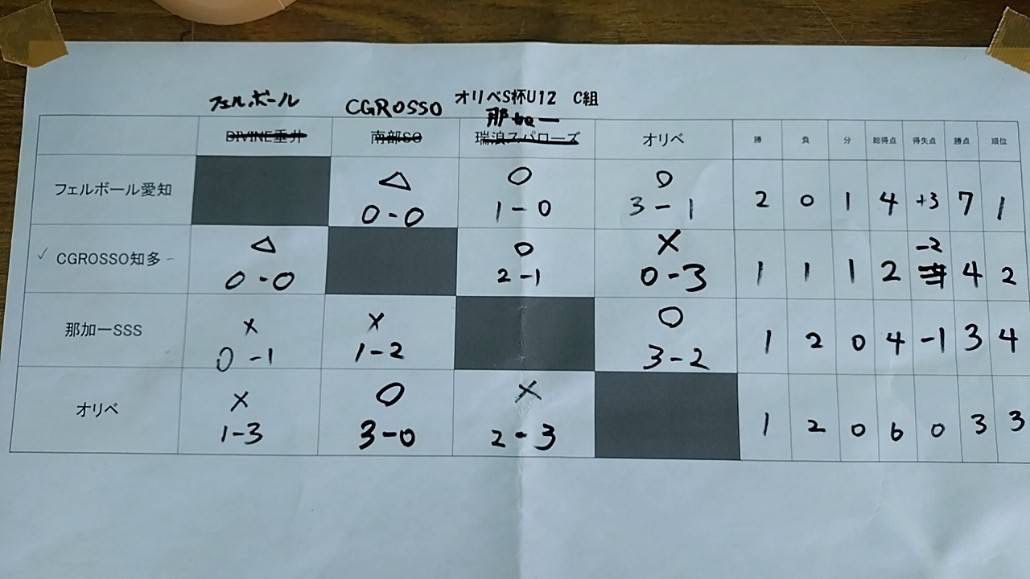 フェルボール CGROSSO オリベS杯U12 C組
那加一
DIVINE垂井 南部SC 瑞浪スパローズ オリベ 勝 負 分 総得点 得失点 勝点 順位
フェルボール愛知 △ ○ ○
0-0 1-0 3-1 2 0 1 4 +3 7 1
✓ CGROSSO知多 △ ○ × -2
0-0 2-1 0-3 1 1 1 2 4 2
那加一SSS × × ○
0-1 1-2 3-2 1 2 0 4 -1 3 4
オリベ × ○ ×
1-3 3-0 2-3 1 2 0 6 0 3 3